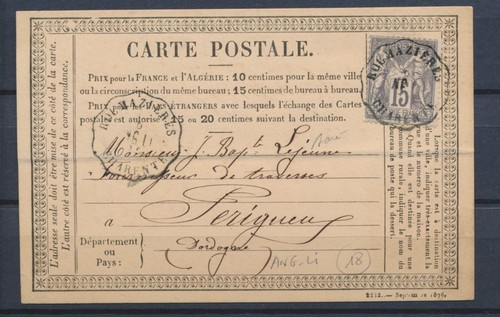 CARTE POSTALE.
PRIX pour la FRANCE et l'ALGÉRIE: 10 centimes pour la même ville
ou la circonscription du même bureau; 15 centimes de bureau à bureau.
ÉTRANGERS avec lesquels l'échange des Cartes
postales est autorisé 15 ou 20 centimes suivant la destination.
RUE-MAZIÈRES
CHARENTE
RUE-MAZIÈRES
CHARENTE
15
Monsieur J. Bapte Lejeune
de traverses
à Périgueux
Dordogne
Département
ou
Pays:
ANG-Li
18
L'adresse seule doit être mise de ce côté de la carte.
L'autre côté est réservé à la correspondance.
Lorsque la carte est à destination
d'une ville, indiquer très-exactement
la rue et le numéro de la maison.
Quand elle est destinée pour une
commune rurale, indiquer le nom du
bureau de poste qui la dessert.